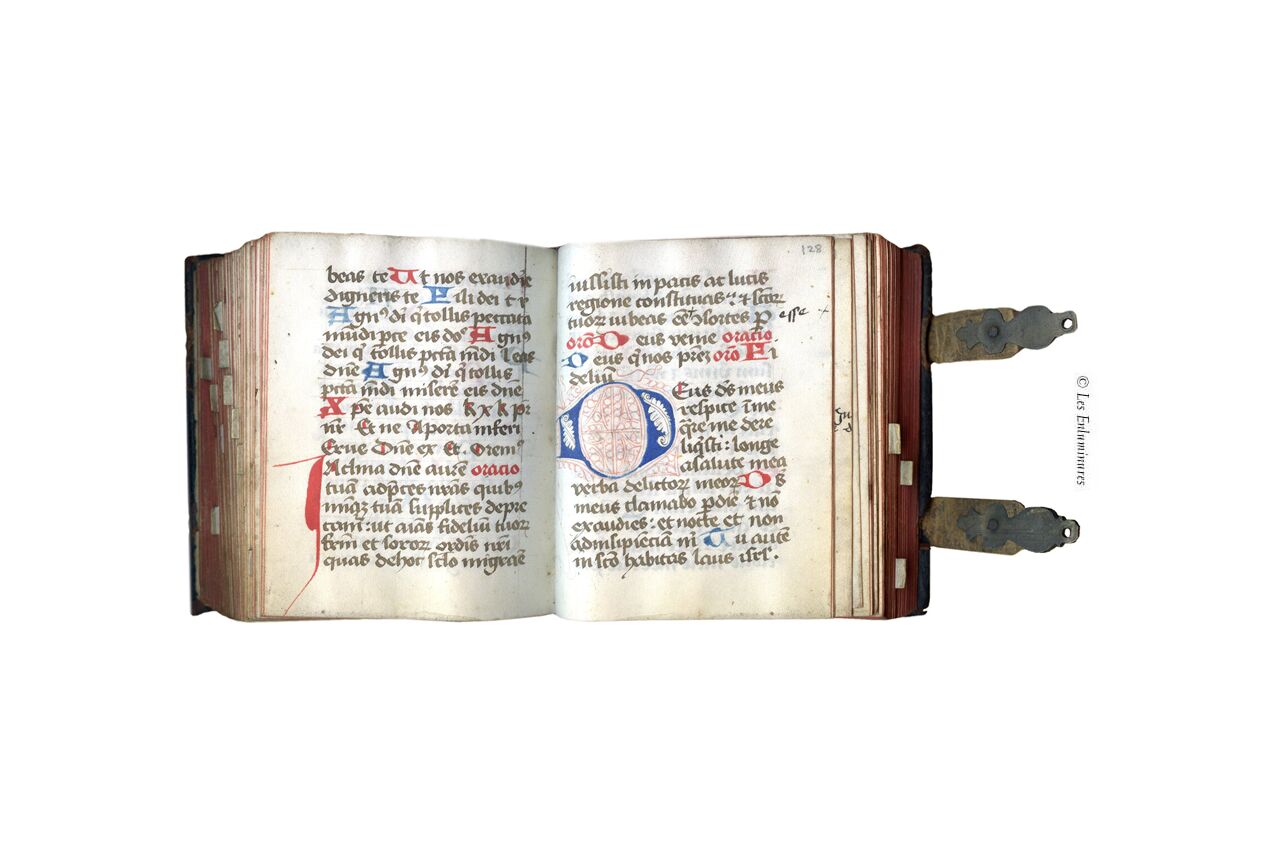 beas te Ut nos exaudire
digneris te Fili dei t r
Agnꝰ di q̄ tollis peccata
mūdi pce eis dō Agnꝰ
dei q̄ tollis pctā mūdi
dn̄e Agnꝰ di q̄ tollis
pctā mūdi miserē eis dn̄e
Xp̄e audi nos k x k pr̄
nr̄ Et ne A porta inferi
Erue Dn̄e ex Et Oremꝰ
Inclina dn̄e aurē oracio
tuā ad p̄ces nr̄as quibꝰ
tuā supplices depre
cam: ut aīas fideliū tuoꝝ
frm̄ et soroꝝ ordīs nr̄i
quas de hoc sclo migrare
128
iussisti in pacis ac lucis
regione constituas et scōꝝ
tuoꝝ iubeas cē ꝯsortes P
esse +
orō Deus venie oracio
Deus q̄ nos pr̄ez orō Fi
deliū
Deus dꝰs meus
respice ī me
q̄re me dere
liq̄sti: longe
a salute mea
verba delictoꝝ meoꝝ Dꝰs
meus clamabo ꝑ diē et nō
exaudies: et nocte et non
ad insipiēciā m̄ Tu autē
in scō habitas laus isrl.
© Les Enluminures